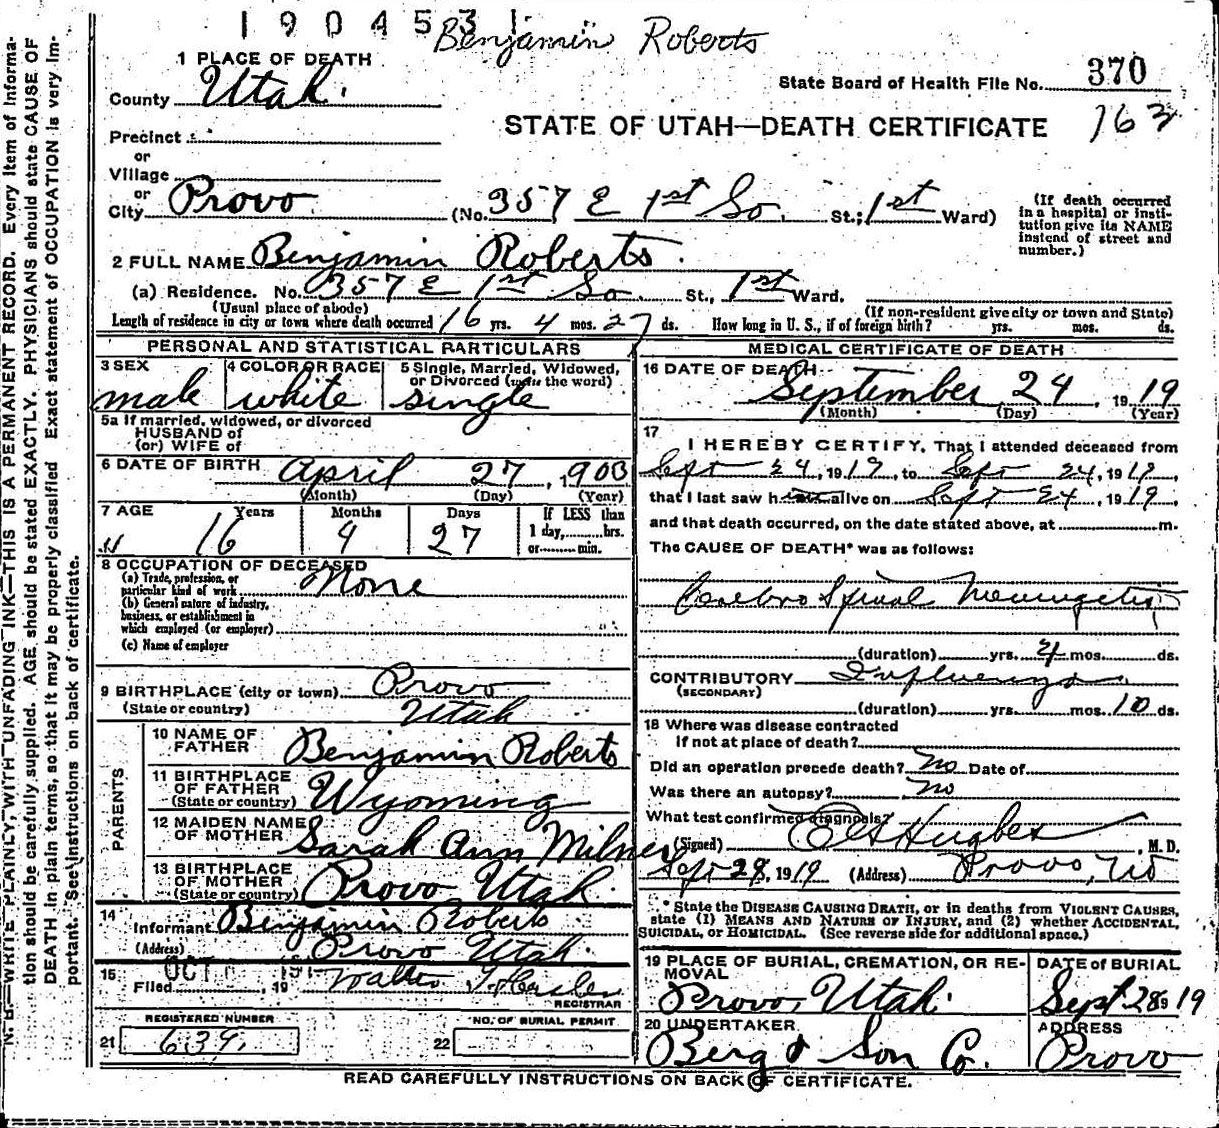 1904531
Benjamin Roberts
1 PLACE OF DEATH
State Board of Health File No. 370
County Utah.
STATE OF UTAH—DEATH CERTIFICATE 163
Precinct
or
Village
or
City Provo (No. 357 E 1st So. St.; 1st Ward)
(If death occurred in a hospital or institution give its NAME instead of street and number.)
2 FULL NAME Benjamin Roberts.
(a) Residence. No. 357 E 1st So. St., 1st Ward.
(Usual place of abode) (If non-resident give city or town and State)
Length of residence in city or town where death occurred 16 yrs. 4 mos. 27 ds. How long in U. S., if of foreign birth? yrs. mos. ds.
PERSONAL AND STATISTICAL PARTICULARS
3 SEX male
4 COLOR OR RACE white
5 Single, Married, Widowed, or Divorced (write the word) single
5a If married, widowed, or divorced
HUSBAND of
(or) WIFE of
6 DATE OF BIRTH April 27, 1903
(Month) (Day) (Year)
7 AGE Years Months Days If LESS than
16 4 27 1 day, hrs.
or min.
8 OCCUPATION OF DECEASED
(a) Trade, profession, or
particular kind of work None
(b) General nature of industry,
business, or establishment in
which employed (or employer)
(c) Name of employer
9 BIRTHPLACE (city or town) Provo
(State or country) Utah
PARENTS
10 NAME OF FATHER Benjamin Roberts
11 BIRTHPLACE OF FATHER (State or country) Wyoming
12 MAIDEN NAME OF MOTHER Sarah Ann Milner
13 BIRTHPLACE OF MOTHER (State or country) Provo Utah.
14
Informant Benjamin Roberts
(Address) Provo Utah
15 OCT
Filed , 19 Walter T. Hasler
REGISTRAR
REGISTERED NUMBER
21 639.
NO. OF BURIAL PERMIT
22
MEDICAL CERTIFICATE OF DEATH
16 DATE OF DEATH
September 24, 1919
(Month) (Day) (Year)
17
I HEREBY CERTIFY, That I attended deceased from
Sept 24, 1919, to Sept 24, 1919,
that I last saw h alive on Sept 24, 1919,
and that death occurred, on the date stated above, at m.
The CAUSE OF DEATH* was as follows:
Cerebro Spinal Meningetis
(duration) yrs. mos. ds.
CONTRIBUTORY Influenza
(SECONDARY)
(duration) yrs. mos. 10 ds.
18 Where was disease contracted
If not at place of death?
Did an operation precede death? No Date of
Was there an autopsy? No
What test confirmed diagnosis?
(Signed) Hughes, M. D.
Sept 28, 1919 (Address) Provo, Ut
* State the DISEASE CAUSING DEATH, or in deaths from VIOLENT CAUSES,
state (1) MEANS AND NATURE OF INJURY, and (2) whether ACCIDENTAL,
SUICIDAL, or HOMICIDAL. (See reverse side for additional space.)
19 PLACE OF BURIAL, CREMATION, OR REMOVAL
Provo, Utah.
DATE of BURIAL
Sept. 28 1919
20 UNDERTAKER
Berg & Son Co.
ADDRESS
Provo
READ CAREFULLY INSTRUCTIONS ON BACK OF CERTIFICATE.
N. B.—WRITE PLAINLY, WITH UNFADING INK—THIS IS A PERMANENT RECORD. Every item of informa-
tion should be carefully supplied. AGE should be stated EXACTLY. PHYSICIANS should state CAUSE OF
DEATH in plain terms, so that it may be properly classified. Exact statement of OCCUPATION is very im-
portant. See instructions on back of certificate.